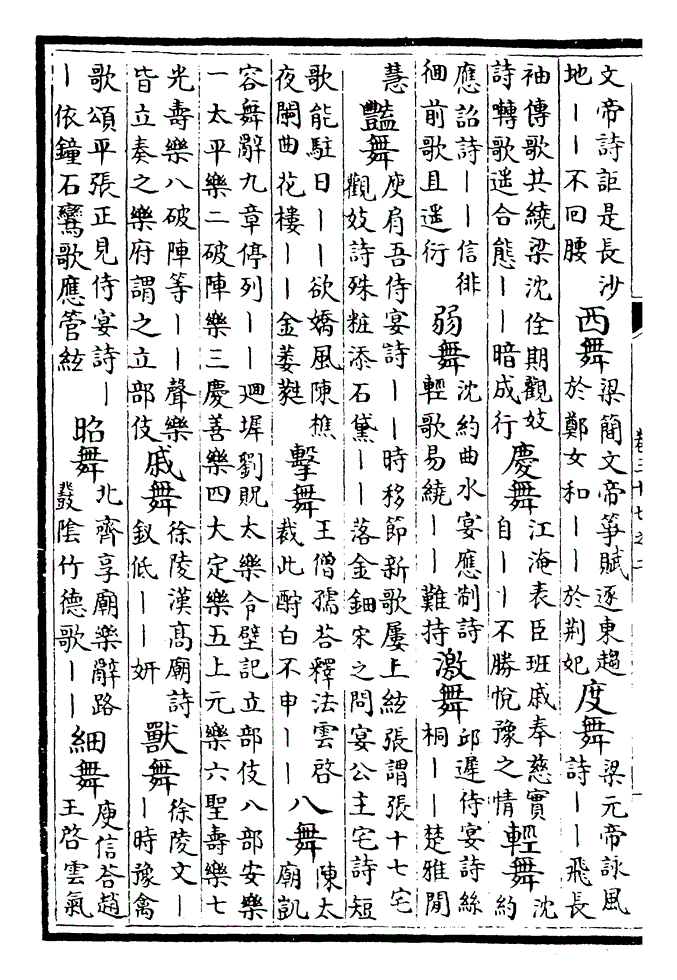 文帝詩詎是長沙
地丨丨不回腰
西舞
梁簡文帝箏賦逐東趨
於鄭女和丨丨於荆妃
度舞
梁元帝詠風
詩丨丨飛長
袖傳歌共繞梁沈佺期觀妓
詩囀歌遥合態丨丨暗成行
慶舞
江淹表臣班戚奉慈實
自丨丨不勝悅豫之情
輕舞
沈
約
應詔詩丨丨信徘
徊前歌且遥衍
弱舞
沈約曲水宴應制詩
輕歌易繞丨丨難持
激舞
邱遲侍宴詩絲
桐丨丨楚雅閒
慧
豔舞
庾肩吾侍宴詩丨丨時移節新歌屢上絃張謂張十七宅
觀妓詩殊粧添石黛丨丨落金鈿宋之問宴公主宅詩短
歌能駐日丨丨欲嬌風陳樵
夜闌曲花樓丨丨金蔞蕤
擊舞
王僧孺荅釋法雲啓
裁此酹白不申丨丨
八舞
陳太
廟凱
容舞辭九章停列丨丨廻墀劉貺太樂令壁記立部伎八部安樂
一太平樂二破陣樂三慶善樂四大定樂五上元樂六聖壽樂七
光壽樂八破陣等丨丨聲樂
皆立奏之樂府謂之立部伎
戚舞
徐陵漢高廟詩
釵低丨丨妍
獸舞
徐陵文丨
丨時豫禽
歌頌平張正見侍宴詩丨
丨依鐘石鸞歌應管絃
昭舞
北齊享廟樂辭路
鼗陰竹德歌丨丨
細舞
庾信荅趙
王啓雲氣